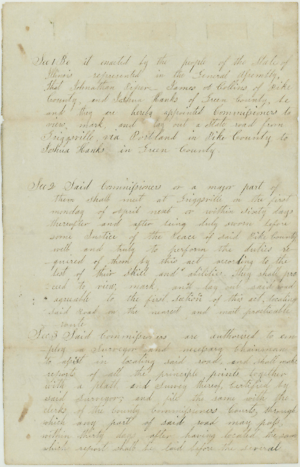 Sec 1 Be it enacted by the people of the State of
Illinois represented in the General Assembly,
That Johnathan James A Collins of Pike
County, and Joshua Hanks of Green County, be
and they are hereby appointed Commissioners to
view, mark and lay out a state road from
Griggsville via Portland in Pike County to
Joshua Hanks in Green County.
Sec 2 Said Commissioners or a major part of
them shall meet at Griggsville on the first
monday of April next or within Sixty days
thereafter and after being duly sworn before
some Justice of the Peace of Pike County
well and truly to perform the duties re
quired of them by this act according to the
best of their skill and abilities, They shall pro
ceed to view, mark and lay out said road
agreeable to the first section of this act, locating
said road on the nearest and most practicable
route
Sec 3 Said Commissioners are authorized to em
ploy a Surveyor and necessary Chainmen
to assist in locating said road, and shall make
reports of all the principle points together
with a platt and survey thereof certified by
said surveyor; and file the same with the
clerks of the county commissioners Courts, through
which any part of said road may pass,
within thirty days after having located the same
which report shall be laid before the several